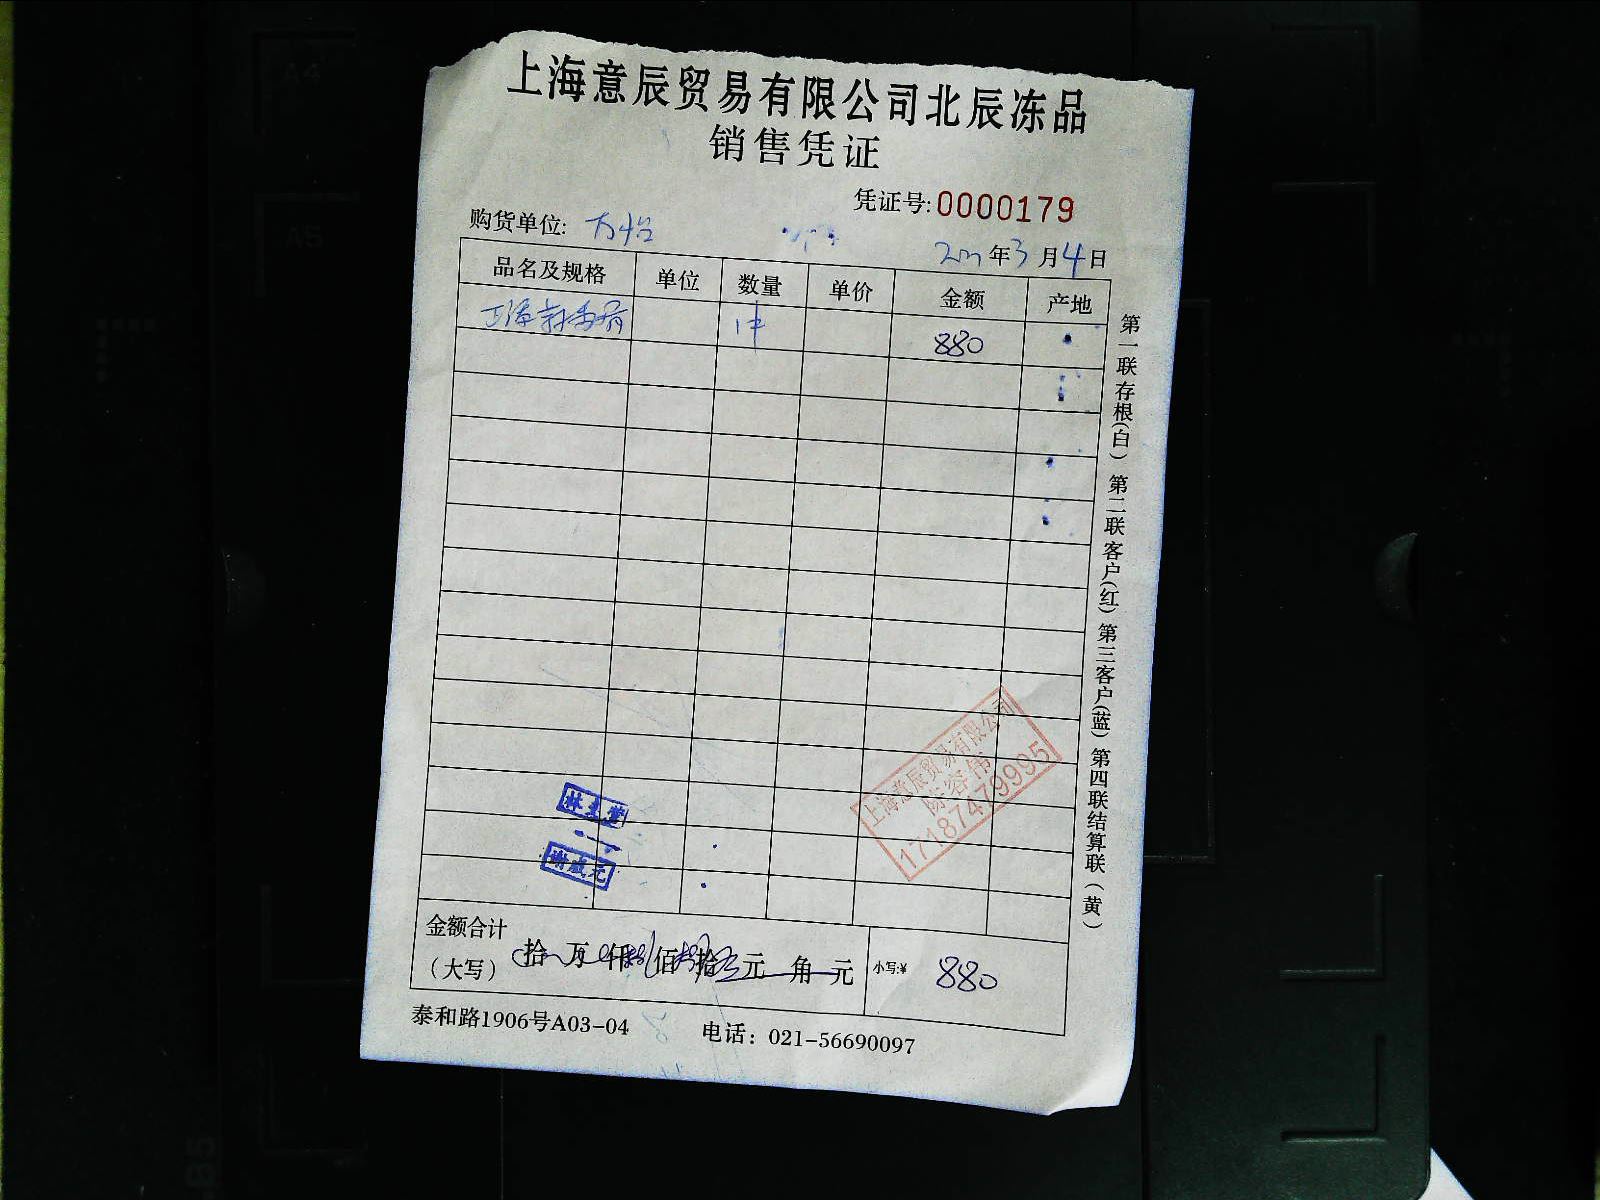 上海意辰贸易有限公司北辰冻品
销售凭证
凭证号:0000179
购货单位: 方怡
年3月4日
品名及规格 单位 数量 单价 金额 产地
1件 880
金额合计
(大写) 拾 万 仟 佰 拾 元 角 元 小写:¥ 880
泰和路1906号A03-04 电话：021-56690097
第一联存根(白) 第二联客户(红) 第三客户(蓝) 第四联结算联(黄)
上海意辰贸易有限公司
17187479995